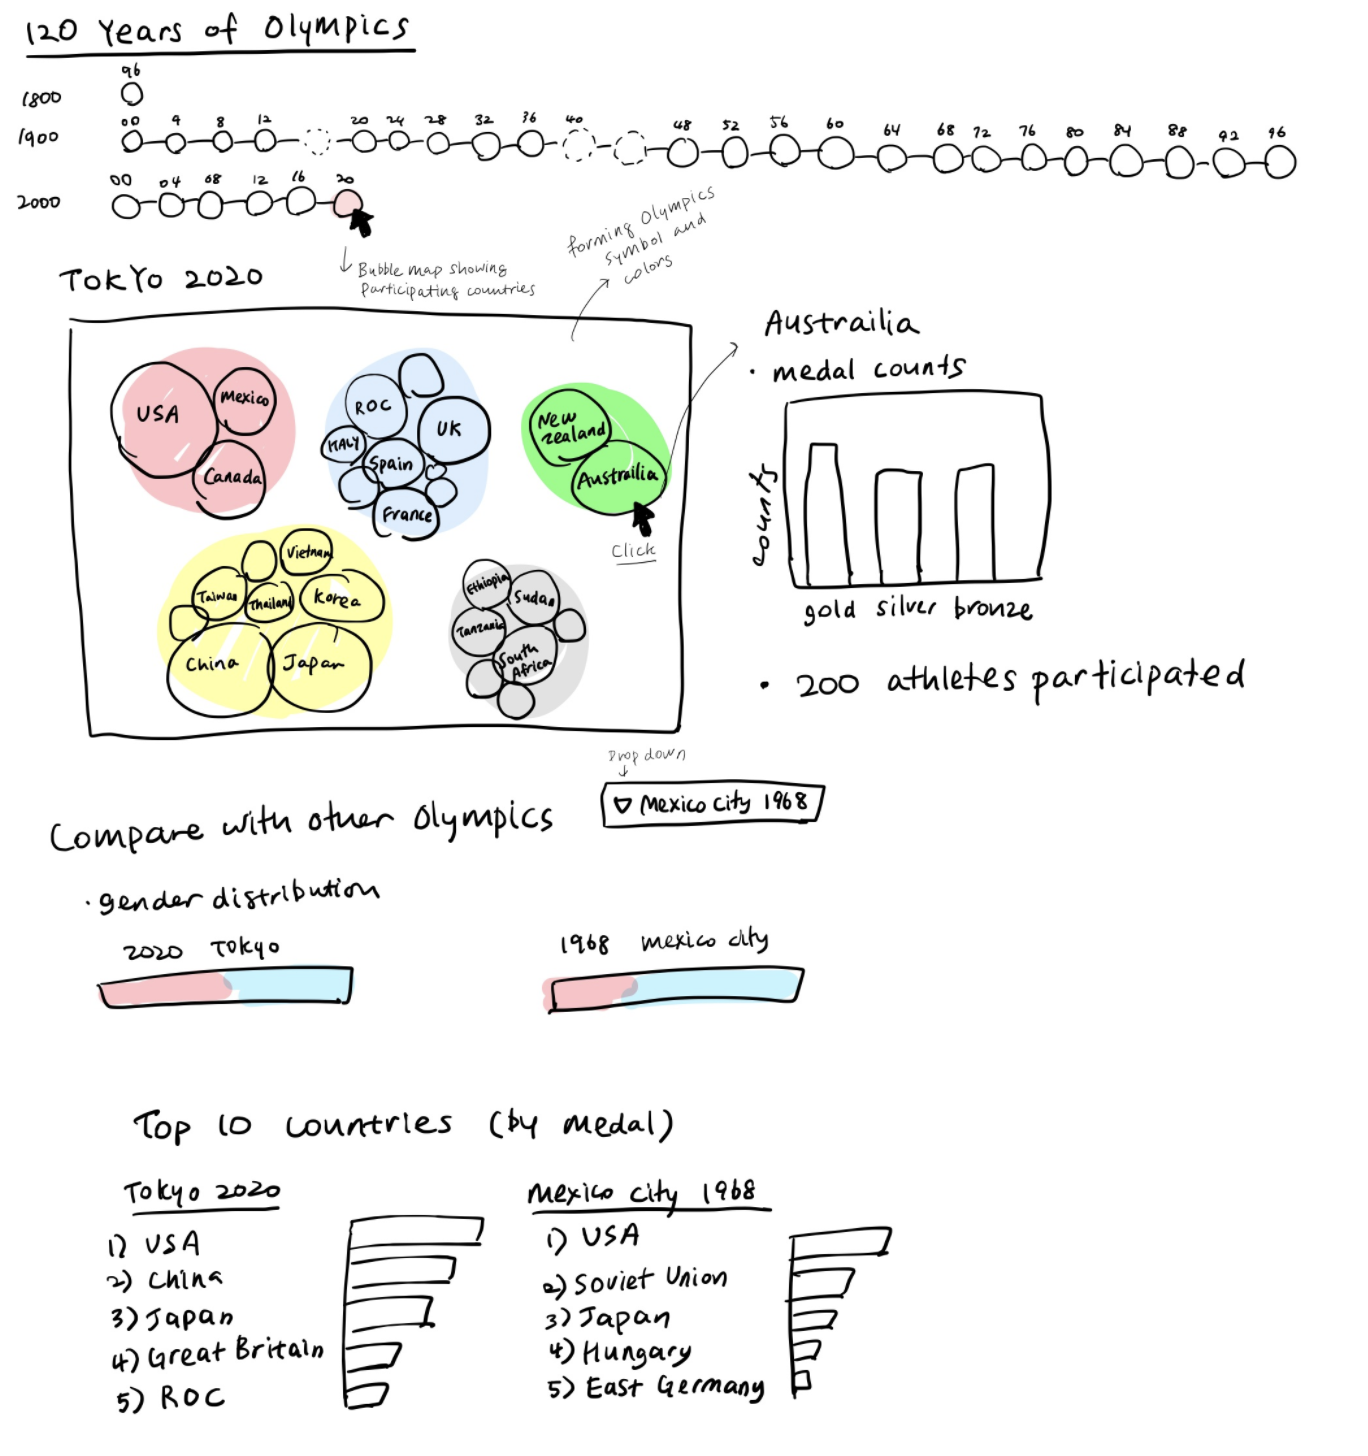 120 Years of Olympics
96
1800
00 4 8 12 20 24 28 32 36 40 48 52 56 60 64 68 72 76 80 84 88 92 96
1900
00 04 08 12 16 20
2000
forming Olympics
symbol and
colors
Bubble map showing
participating countries
TOKYO 2020
USA
Mexico
Canada
ROC
UK
ITALY
Spain
France
New
zealand
Austrailia
Click
Vietnam
Taiwan
Thailand
Korea
China
Japan
Ethiopia
Sudan
Tanzania
South
Africa
Austrailia
• medal counts
counts
gold silver bronze
• 200 athletes participated
Drop down
Mexico City 1968
Compare with other Olympics
• gender distribution
2020 TOKYO
1968 mexico city
Top 10 countries (by medal)
Tokyo 2020
1) USA
2) China
3) Japan
4) Great Britain
5) ROC
Mexico city 1968
1) USA
2) Soviet Union
3) Japan
4) Hungary
5) East Germany